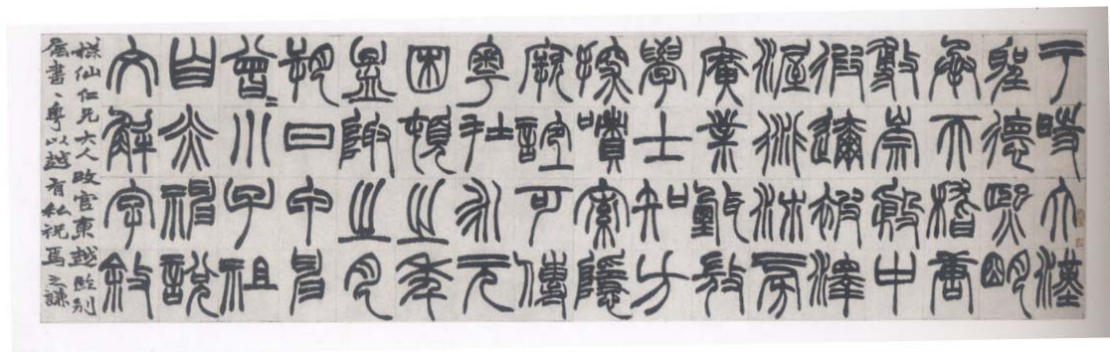 于時大漢
聖德熙明
承天稽唐
敷崇殷中
遐邇被澤
渥衍沛滂
廣業甄微
學士知方
探嘖索隱
厥誼可傳
粵在永元
困頓之年
孟陬之月
朔日甲申
曾〻小子祖
自炎神說
文解字敘
楳仙仁兄大人改官東越臨別
屬書〻粵以越有私祝焉之謙